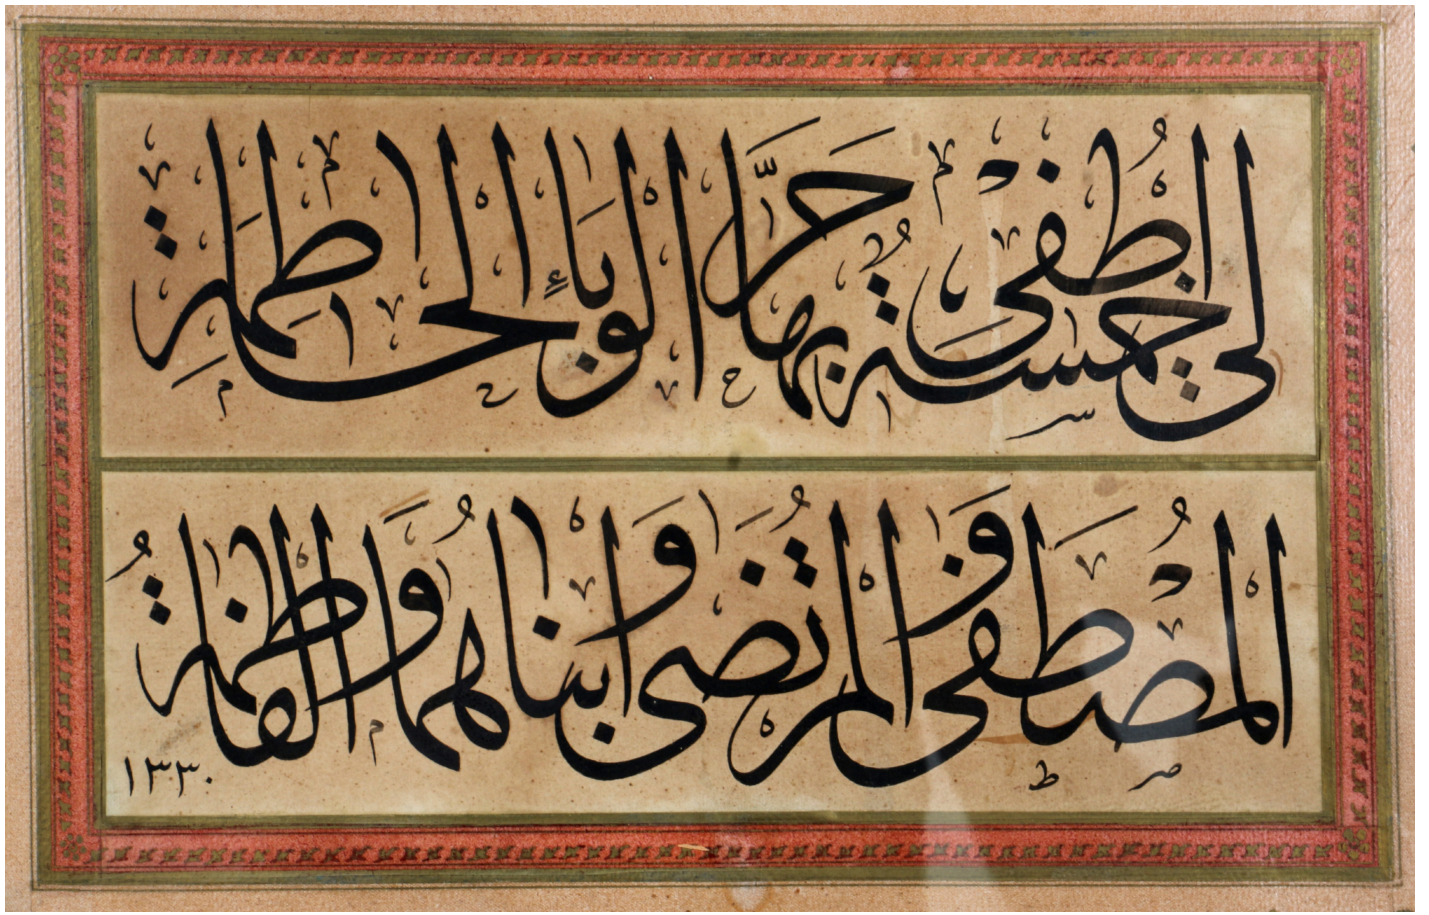 لِي خَمْسَةٌ أُطْفِي بِهَا حَرَّ الْوَبَاءِ الْحَاطِمَةِ
الْمُصْطَفَى وَالْمُرْتَضَى وَابْنَاهُمَا وَالْفَاطِمَةُ
١٣٣٠